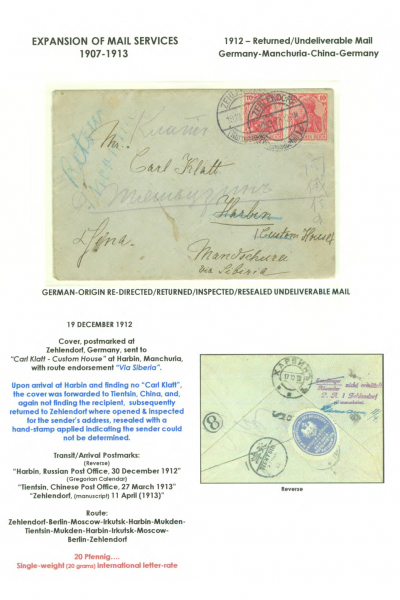 EXPANSION OF MAIL SERVICES
1907-1913
1912 – Returned/Undeliverable Mail
Germany-Manchuria-China-Germany
Retour
Клатт
Mr.
Carl Klatt
Тяньцзинь
Harbin
(Custom House)
China.
Mandschurei
via Siberia
GERMAN-ORIGIN RE-DIRECTED/RETURNED/INSPECTED/RESEALED UNDELIVERABLE MAIL
19 DECEMBER 1912
Cover, postmarked at
Zehlendorf, Germany, sent to
"Carl Klatt - Custom House" at Harbin, Manchuria,
with route endorsement "Via Siberia".
Upon arrival at Harbin and finding no "Carl Klatt",
the cover was forwarded to Tientsin, China, and,
again not finding the recipient, subsequently
returned to Zehlendorf where opened & inspected
for the sender's address, resealed with a
hand-stamp applied indicating the sender could
not be determined.
Transit/Arrival Postmarks:
(Reverse)
"Harbin, Russian Post Office, 30 December 1912"
(Gregorian Calendar)
"Tientsin, Chinese Post Office, 27 March 1913"
"Zehlendorf, (manuscript) 11 April (1913)"
Route:
Zehlendorf-Berlin-Moscow-Irkutsk-Harbin-Mukden-
Tientsin-Mukden-Harbin-Irkutsk-Moscow-
Berlin-Zehlendorf
20 Pfennig....
Single-weight (20 grams) international letter-rate
ХАРБИНЪ
8
Reverse